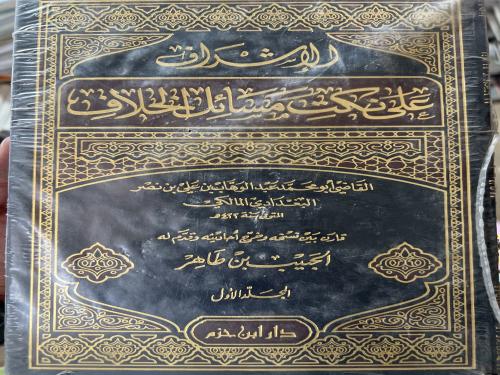 الإشراف
على نكت مسائل الخلاف
القاضي أبو محمد عبد الوهاب بن علي بن نصر
البغدادي المالكي
المتوفى سنة ٤٢٢هـ
قارن بين نسخه وخرج أحاديثه وقدم له
الحبيب بن طاهر
المجلد الأول
دار ابن حزم